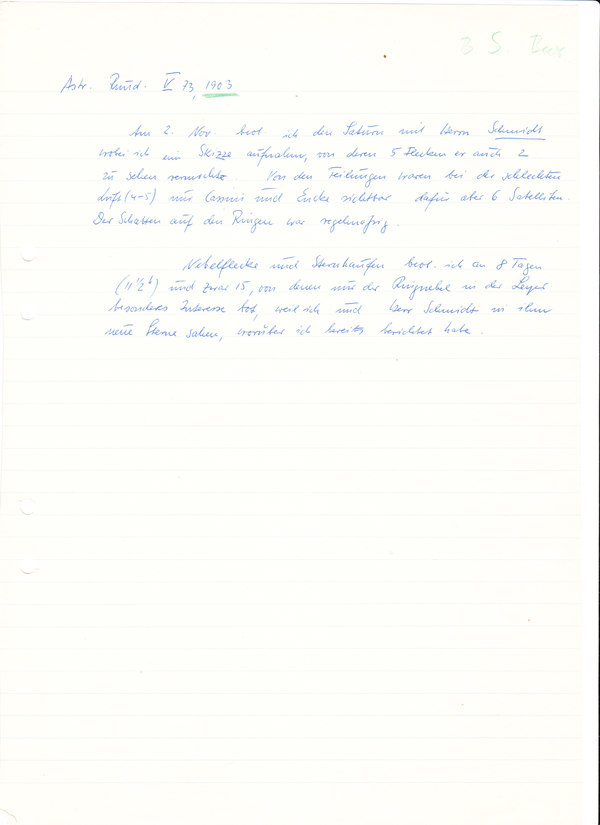 B. S.
Astr. Rund. V 73, 1903
Am 2. Nov. beob. ich den Saturn mit Herrn Schmidt
wobei ich ein Skizze aufnahm, von deren 5 Flecken er auch 2
zu sehen vermochte. Von den Teilungen waren bei der schlechten
Luft (4-5) nur Cassini und Encke sichtbar dafür aber 6 Satelliten.
Der Schatten auf den Ringen war regelmäßig.
Nebelflecke und Sternhaufen beob. ich an 8 Tagen
(11 1/2 h) und zwar 15, von denen nur der Ringnebel in der Leyer
besonderes Interesse bot, weil ich und Herr Schmidt in ihm
neue Sterne sahen, worüber ich bereits berichtet habe.